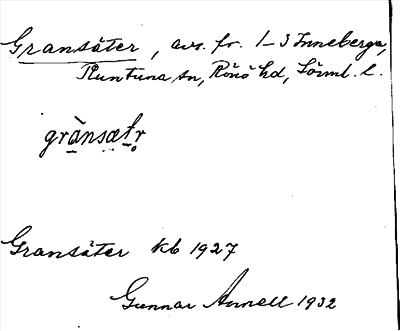 Gransäter, avs. fr. 1-3 Inneberga,
Runtuna sn, Rönö hd, Sörml. l.
grànsætr
Gransäter kb 1927
Gunnar Annell 1932